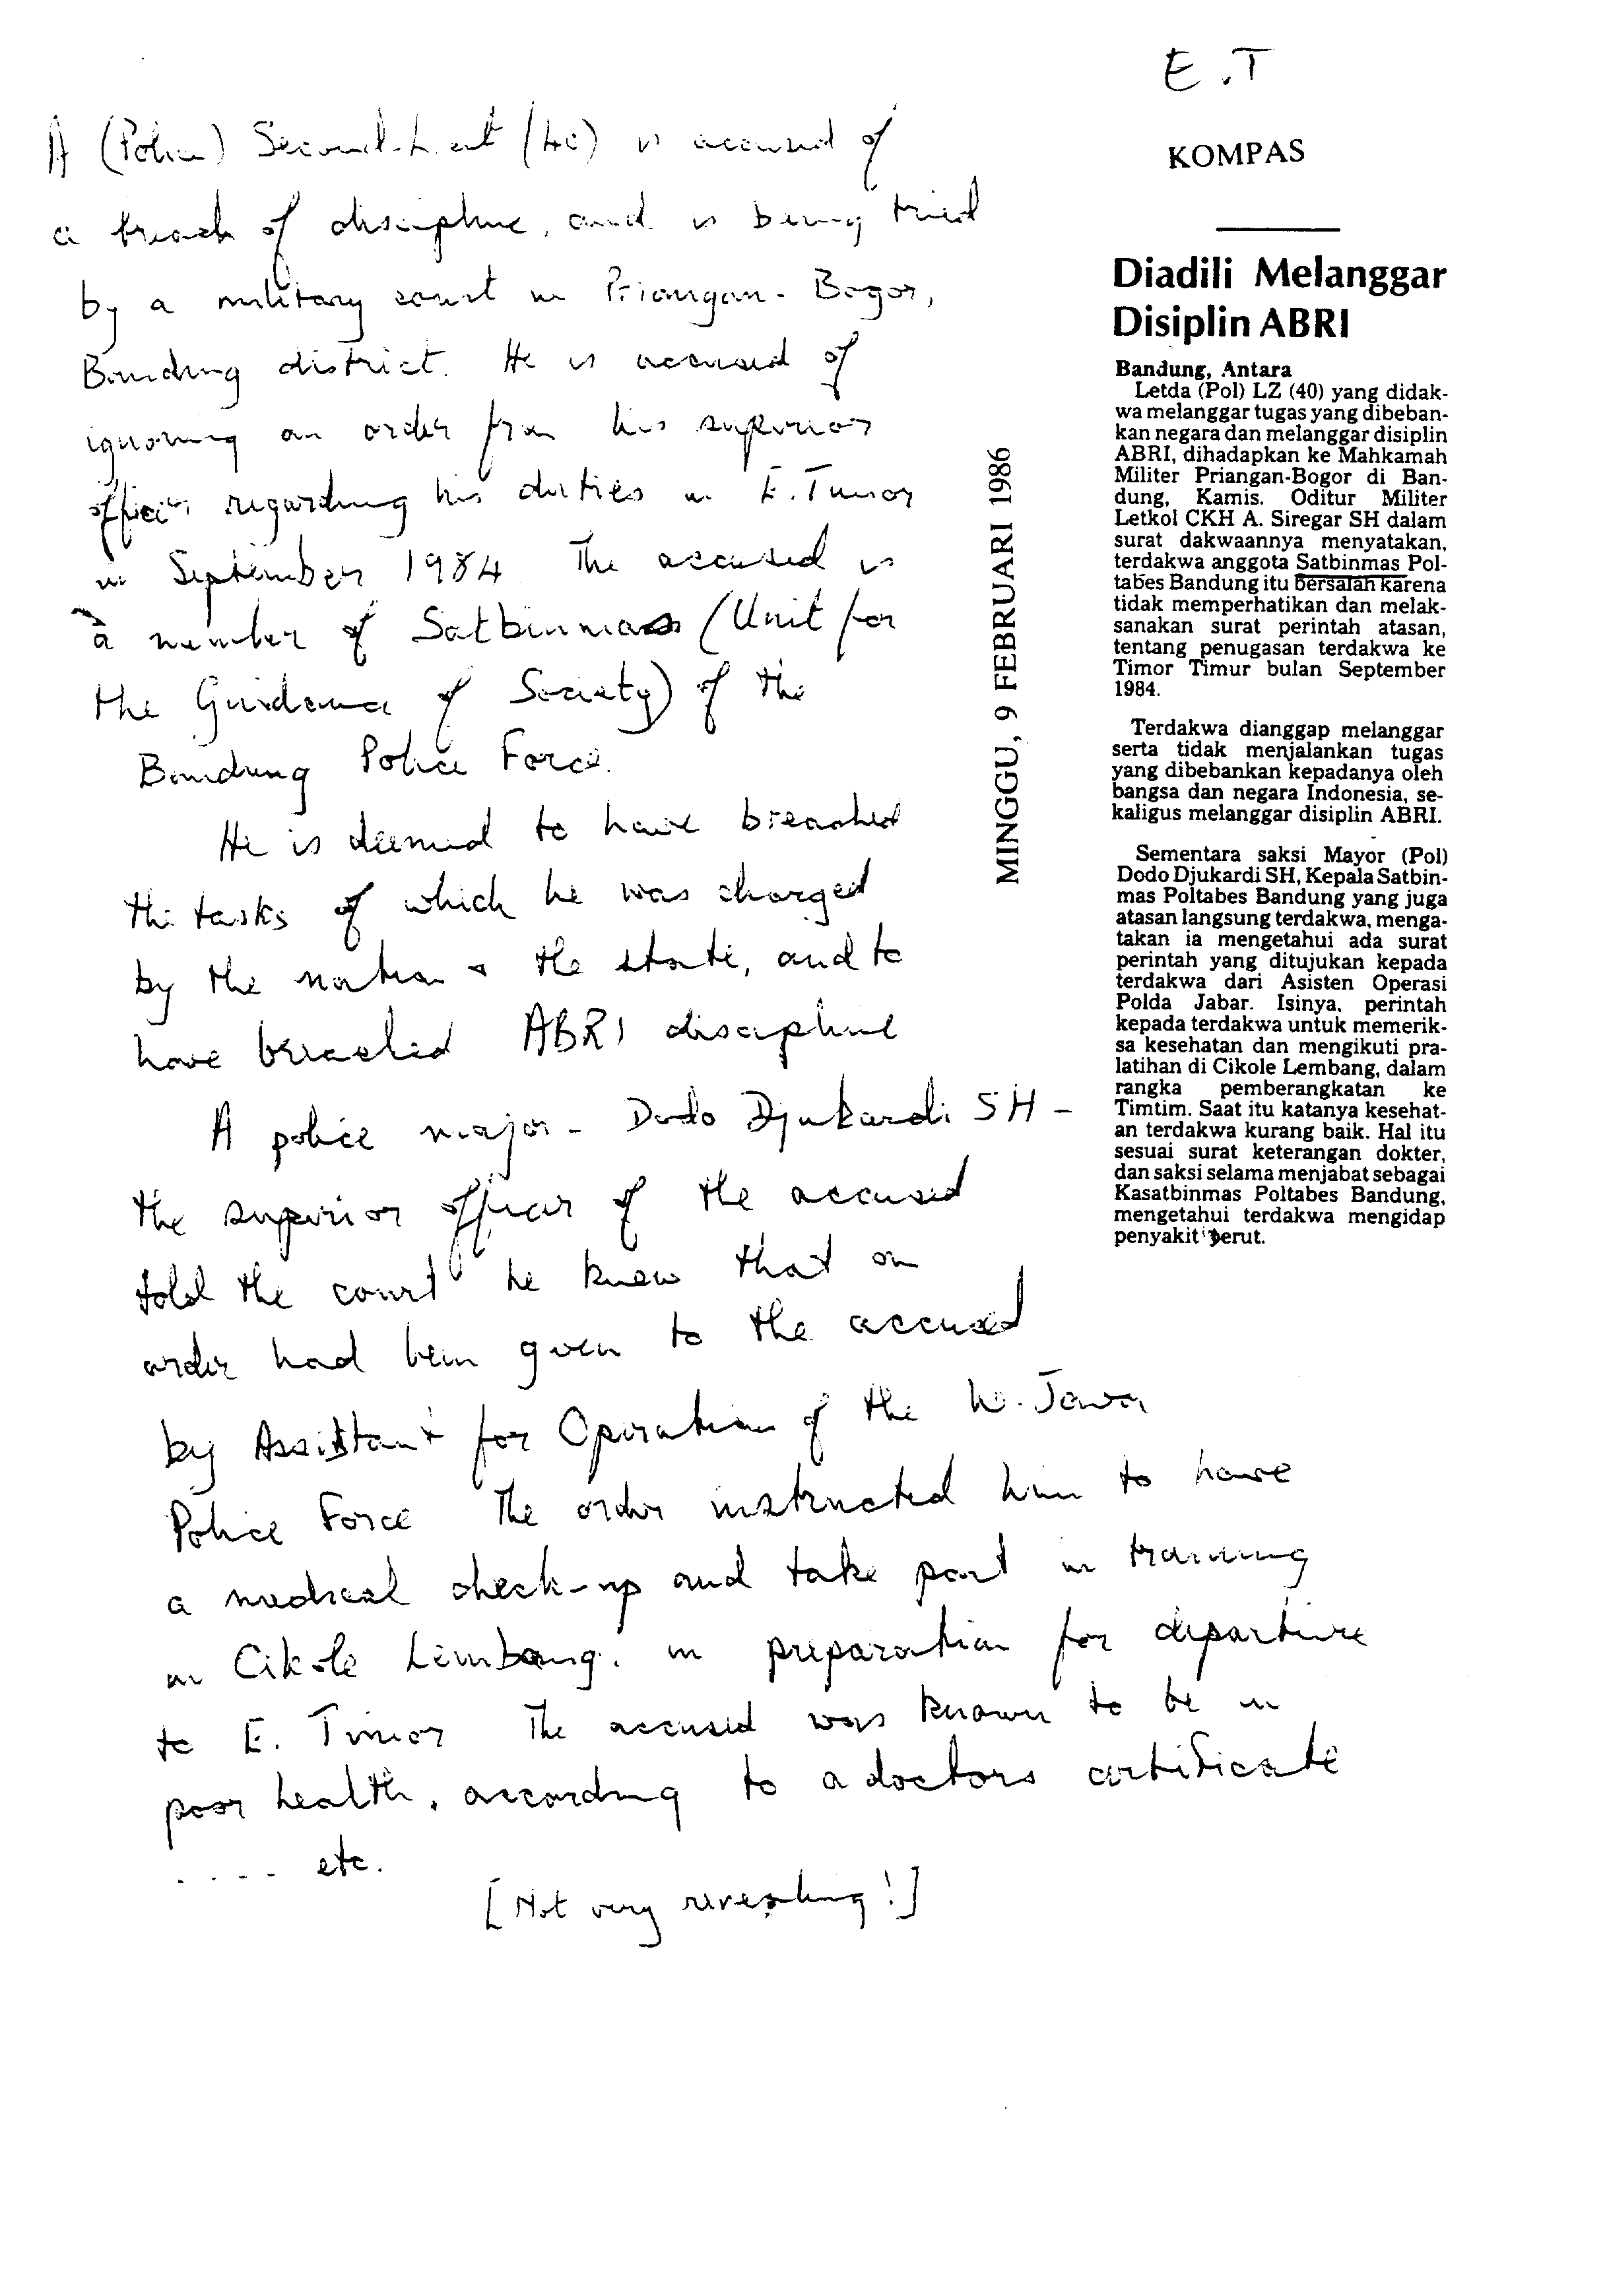 E.T
KOMPAS
A (Police) Second-Lieut (40) is accused of
a breach of discipline, and is being tried
by a military court in Priangan-Bogor,
Bandung district. He is accused of
ignoring an order from his superior
officer regarding his duties in E. Timor
in September 1984. The accused is
a member of Satbinmas (Unit for
the Guidance of Society) of the
Bandung Police Force.
He is deemed to have breached
the tasks of which he was charged
by the nation & the state, and to
have breached ABRI discipline
A police major - Dodo Djukardi SH -
the superior officer of the accused
told the court he knew that an
order had been given to the accused
by Assistant for Operation of the W. Java
Police Force The order instructed him to have
a medical check-up and take part in training
in Cikole Lembang, in preparation for departure
to E. Timor The accused was known to be in
poor health, according to a doctors certificate
..... etc.
[Not very revealing!]
MINGGU, 9 FEBRUARI 1986
Diadili Melanggar
Disiplin ABRI
Bandung, Antara
Letda (Pol) LZ (40) yang didak-
wa melanggar tugas yang dibeban-
kan negara dan melanggar disiplin
ABRI, dihadapkan ke Mahkamah
Militer Priangan-Bogor di Ban-
dung, Kamis. Oditur Militer
Letkol CKH A. Siregar SH dalam
surat dakwaannya menyatakan,
terdakwa anggota Satbinmas Pol-
tabes Bandung itu bersalah karena
tidak memperhatikan dan melak-
sanakan surat perintah atasan,
tentang penugasan terdakwa ke
Timor Timur bulan September
1984.
Terdakwa dianggap melanggar
serta tidak menjalankan tugas
yang dibebankan kepadanya oleh
bangsa dan negara Indonesia, se-
kaligus melanggar disiplin ABRI.
Sementara saksi Mayor (Pol)
Dodo Djukardi SH, Kepala Satbin-
mas Poltabes Bandung yang juga
atasan langsung terdakwa, menga-
takan ia mengetahui ada surat
perintah yang ditujukan kepada
terdakwa dari Asisten Operasi
Polda Jabar. Isinya, perintah
kepada terdakwa untuk memerik-
sa kesehatan dan mengikuti pra-
latihan di Cikole Lembang, dalam
rangka pemberangkatan ke
Timtim. Saat itu katanya kesehat-
an terdakwa kurang baik. Hal itu
sesuai surat keterangan dokter,
dan saksi selama menjabat sebagai
Kasatbinmas Poltabes Bandung,
mengetahui terdakwa mengidap
penyakit perut.